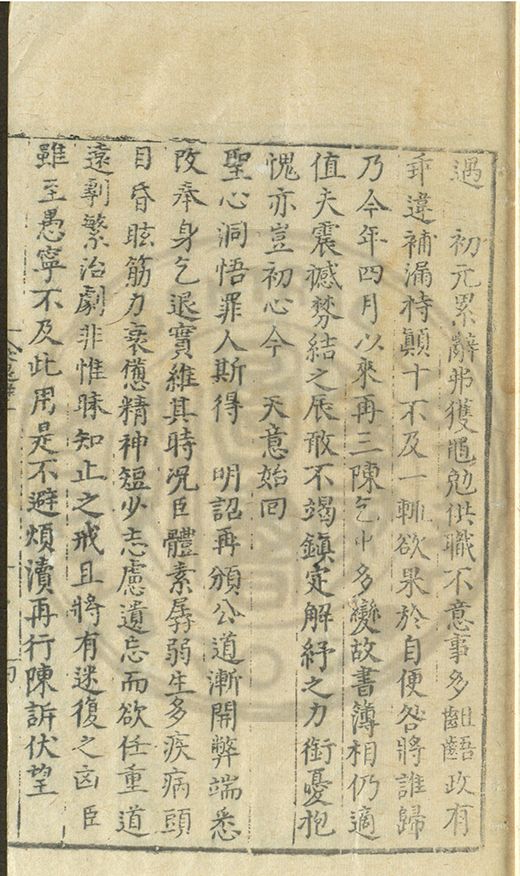 遇　初元累辭弗獲黽勉供職不意事多齟齬政有
乖違補漏持顚十不及一輒欲果於自便咎將誰歸
乃今年四月以來再三陳乞中多變故書簿相仍適
值夫震撼棼結之辰敢不竭鎮定解紓之力銜憂抱
愧亦豈初心今　天意始回
聖心洞悟罪人斯得　明詔再頒公道漸開弊端悉
改奉身乞退實維其時況臣體素孱弱生多疾病頭
目昏眩筋力衰憊精神短少志慮遺忘而欲任重道
遠剸繁治劇非惟昧知止之戒且將有迷復之凶臣
雖至愚寧不及此用是不避煩瀆再行陳訴伏望